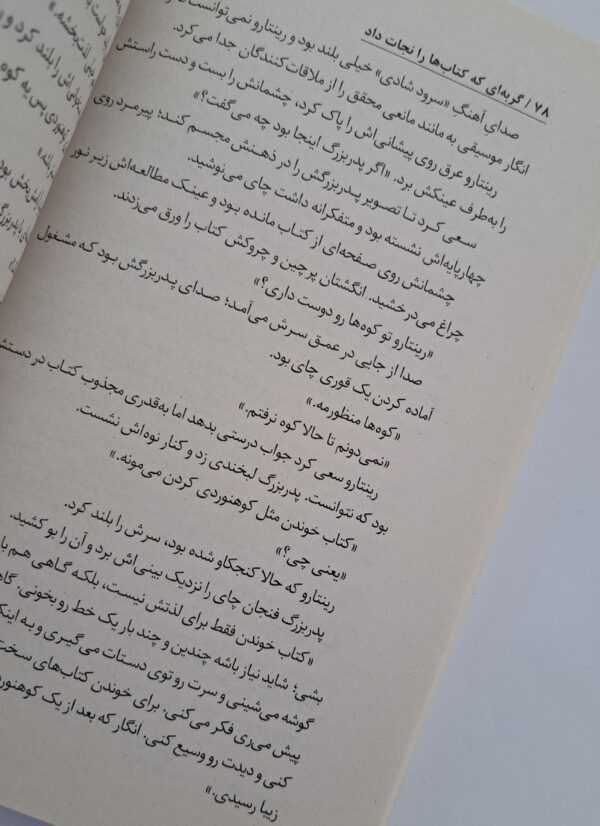 ۷۸ / گربه‌ای که کتاب‌ها را نجات داد
صدای آهنگ «سرود شادی» خیلی بلند بود و رینتارو نمی‌توانست
انگار موسیقی به مانند مانعی محقق را از ملاقات‌کنندگان جدا می‌کرد.
رینتارو عرق روی پیشانی‌اش را پاک کرد، چشمانش را بست و دست راستش
را به‌طرف عینکش برد. «اگر پدربزرگ اینجا بود چه می‌گفت؟»
سعی کرد تا تصویر پدربزرگش را در ذهنش مجسم کند؛ پیرمرد روی
چهارپایه‌اش نشسته بود و متفکرانه داشت چای می‌نوشید.
چشمانش روی صفحه‌ای از کتاب مانده بود و عینک مطالعه‌اش زیر نور
چراغ می‌درخشید. انگشتان پرچین و چروکش کتاب را ورق می‌زدند.
«رینتارو تو کوه‌ها رو دوست داری؟»
صدا از جایی در عمق سرش می‌آمد؛ صدای پدربزرگش بود که مشغول
آماده کردن یک قوری چای بود.
«کوه‌ها منظورمه.»
«نمی‌دونم تا حالا کوه نرفتم.»
رینتارو سعی کرد جواب درستی بدهد اما به‌قدری مجذوب کتاب در دستش
بود که نتوانست. پدربزرگ لبخندی زد و کنار نوه‌اش نشست.
«کتاب خوندن مثل کوهنوردی کردن می‌مونه.»
«یعنی چی؟»
رینتارو که حالا کنجکاو شده بود، سرش را بلند کرد.
پدربزرگ فنجان چای را نزدیک بینی‌اش برد و آن را بو کشید.
«کتاب خوندن فقط برای لذتش نیست، بلکه گاهی هم
بشی؛ شاید نیاز باشه چندین و چند بار یک خط رو بخونی.
گوشه می‌شینی و سرت رو توی دستات می‌گیری و به
پیش می‌ری فکر می‌کنی. برای خوندن کتاب‌های سخت
کنی و دیدت رو وسیع کنی. انگار که بعد از یک
زیبا رسیدی.»